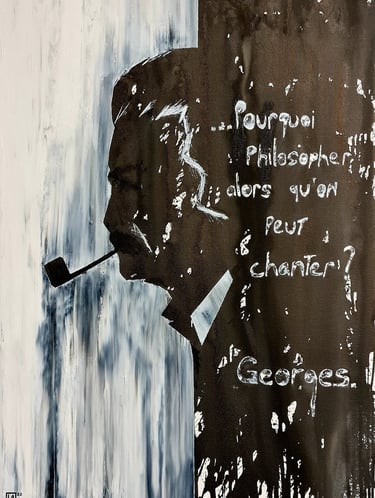 ...Pourquoi
Philosopher,
alors qu'on
PeuT
chanter ?
Georges.